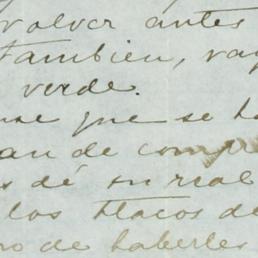 volver antes
tambien, vay
verde.
se que se ha
an de compr
s dé su real
los tlacos de
o de haberles